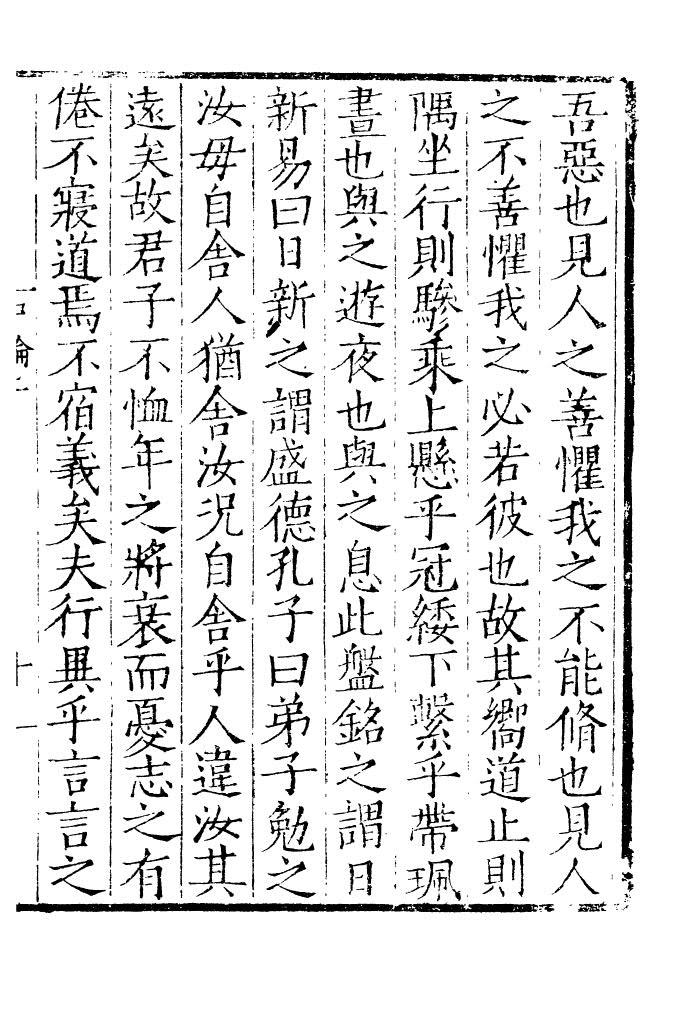 吾惡也見人之善懼我之不能脩也見人
之不善懼我之必若彼也故其嚮道止則
隅坐行則驂乘上懸乎冠緌下繫乎帶珮
晝也與之遊夜也與之息此盤銘之謂日
新易曰日新之謂盛德孔子曰弟子勉之
汝毋自舍人猶舍汝況自舍乎人違汝其
遠矣故君子不恤年之將衰而憂志之有
倦不寢道焉不宿義矣夫行異乎言言之